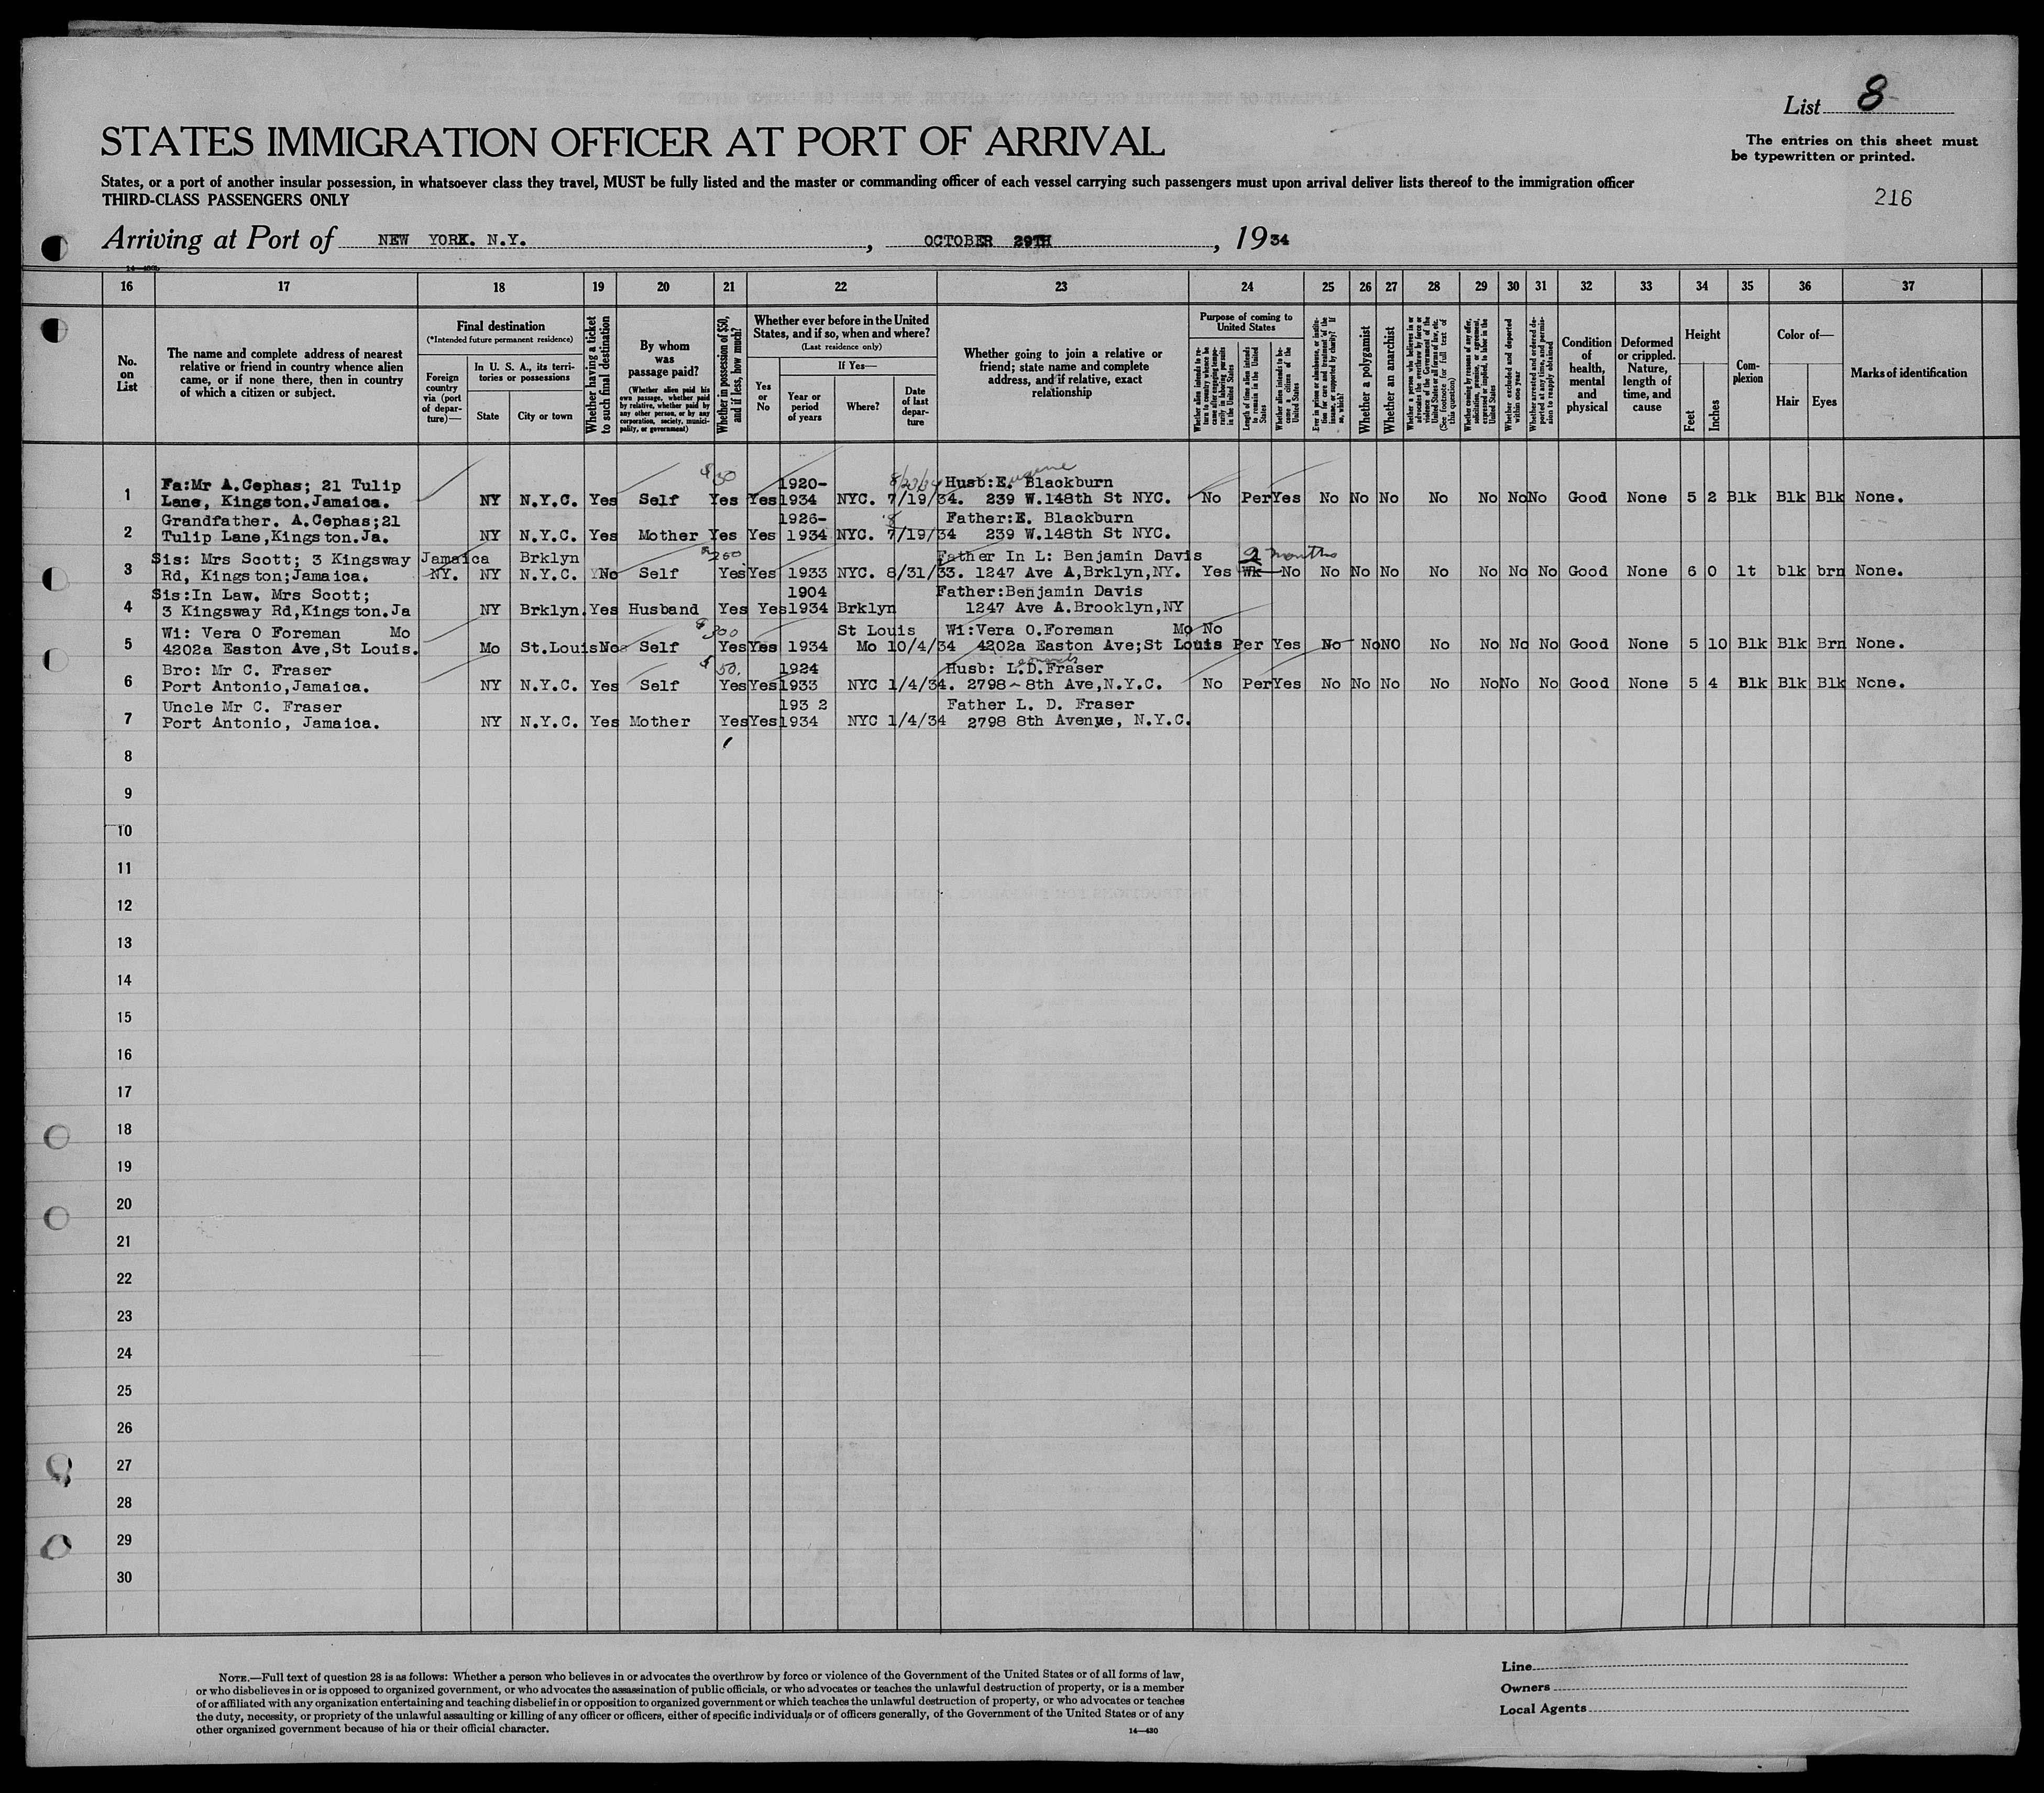 List 8
STATES IMMIGRATION OFFICER AT PORT OF ARRIVAL
The entries on this sheet must
be typewritten or printed.
States, or a port of another insular possession, in whatsoever class they travel, MUST be fully listed and the master or commanding officer of each vessel carrying such passengers must upon arrival deliver lists thereof to the immigration officer
THIRD-CLASS PASSENGERS ONLY
216
Arriving at Port of NEW YORK. N.Y. , OCTOBER 29TH , 1934
16 17 18 19 20 21 22 23 24 25 26 27 28 29 30 31 32 33 34 35 36 37
No. on List
The name and complete address of nearest
relative or friend in country whence alien
came, or if none there, then in country
of which a citizen or subject.
Final destination
(*Intended future permanent residence)
Foreign country via (port of departure)—
In U. S. A., its territories or possessions
State
City or town
Whether having a ticket to such final destination
By whom was passage paid?
(Whether alien paid his own passage, whether paid by relative, whether paid by any other person, or by any corporation, society, municipality, or government)
Whether in possession of $50, and if less, how much?
Whether ever before in the United
States, and if so, when and where?
(Last residence only)
Yes or No
If Yes—
Year or period of years
Where?
Date of last departure
Whether going to join a relative or
friend; state name and complete
address, and if relative, exact
relationship
Purpose of coming to United States
Whether alien intends to return to country whence he came after engaging temporarily in laboring pursuits in the United States
Length of time alien intends to remain in the United States
Whether alien intends to become a citizen of the United States
Ever in prison or almshouse, or institution for care and treatment of the insane, or supported by charity? If so, which?
Whether a polygamist
Whether an anarchist
Whether a person who believes in or advocates the overthrow by force or violence of the Government of the United States or all forms of law, etc. (See footnote for full text of this question)
Whether coming by reason of any offer, solicitation, promise, or agreement, expressed or implied, to labor in the United States
Whether excluded and deported within one year
Whether arrested and ordered deported at any time, and permission to reapply obtained
Condition of health, mental and physical
Deformed or crippled. Nature, length of time, and cause
Height
Feet
Inches
Complexion
Color of—
Hair
Eyes
Marks of identification
$30 8/23/34 Eugene
1 Fa:Mr A.Cephas; 21 Tulip 1920- Husb:E. Blackburn
Lane, Kingston.Jamaica. NY N.Y.C. Yes Self Yes Yes 1934 NYC. 7/19/34. 239 W.148th St NYC. No Per Yes No No No No No No No Good None 5 2 Blk Blk Blk None.
2 Grandfather. A.Cephas;21 1926- 8 Father:E. Blackburn
Tulip Lane,Kingston.Ja. NY N.Y.C. Yes Mother Yes Yes 1934 NYC. 7/19/34 239 W.148th St NYC.
3 Sis: Mrs Scott; 3 Kingsway Jamaica Brklyn $200 Father In L: Benjamin Davis 2 months
Rd, Kingston;Jamaica. NY. NY N.Y.C. No Self Yes Yes 1933 NYC. 8/31/33. 1247 Ave A,Brklyn,NY. Yes Wk No No No No No No No No Good None 6 0 lt blk brn None.
4 Sis:In Law. Mrs Scott; 1904 Father:Benjamin Davis
3 Kingsway Rd,Kingston.Ja NY Brklyn. Yes Husband Yes Yes 1934 Brklyn 1247 Ave A.Brooklyn,NY
5 Wi: Vera O Foreman Mo $300 St Louis Wi:Vera O.Foreman Mo No
4202a Easton Ave,St Louis. Mo St.Louis No Self Yes Yes 1934 Mo 10/4/34 4202a Easton Ave;St Louis Per Yes No No NO No No No No Good None 5 10 Blk Blk Brn None.
6 Bro: Mr C. Fraser $50. 1924 Husb: L.D.Fraser
Port Antonio,Jamaica. NY N.Y.C. Yes Self Yes Yes 1933 NYC 1/4/34. 2798 - 8th Ave,N.Y.C. No Per Yes No No No No No No No Good None 5 4 Blk Blk Blk None.
7 Uncle Mr C. Fraser 193 2 Father L. D. Fraser
Port Antonio, Jamaica. NY N.Y.C. Yes Mother Yes Yes 1934 NYC 1/4/34 2798 8th Avenue, N.Y.C.
8
9
10
11
12
13
14
15
16
17
18
19
20
21
22
23
24
25
26
27
28
29
30
NOTE.—Full text of question 28 is as follows: Whether a person who believes in or advocates the overthrow by force or violence of the Government of the United States or of all forms of law,
or who disbelieves in or is opposed to organized government, or who advocates the assassination of public officials, or who advocates or teaches the unlawful destruction of property, or is a member
of or affiliated with any organization entertaining and teaching disbelief in or opposition to organized government or which teaches the unlawful destruction of property, or who advocates or teaches
the duty, necessity, or propriety of the unlawful assaulting or killing of any officer or officers, either of specific individuals or of officers generally, of the Government of the United States or of any
other organized government because of his or their official character.
14—430
Line
Owners
Local Agents